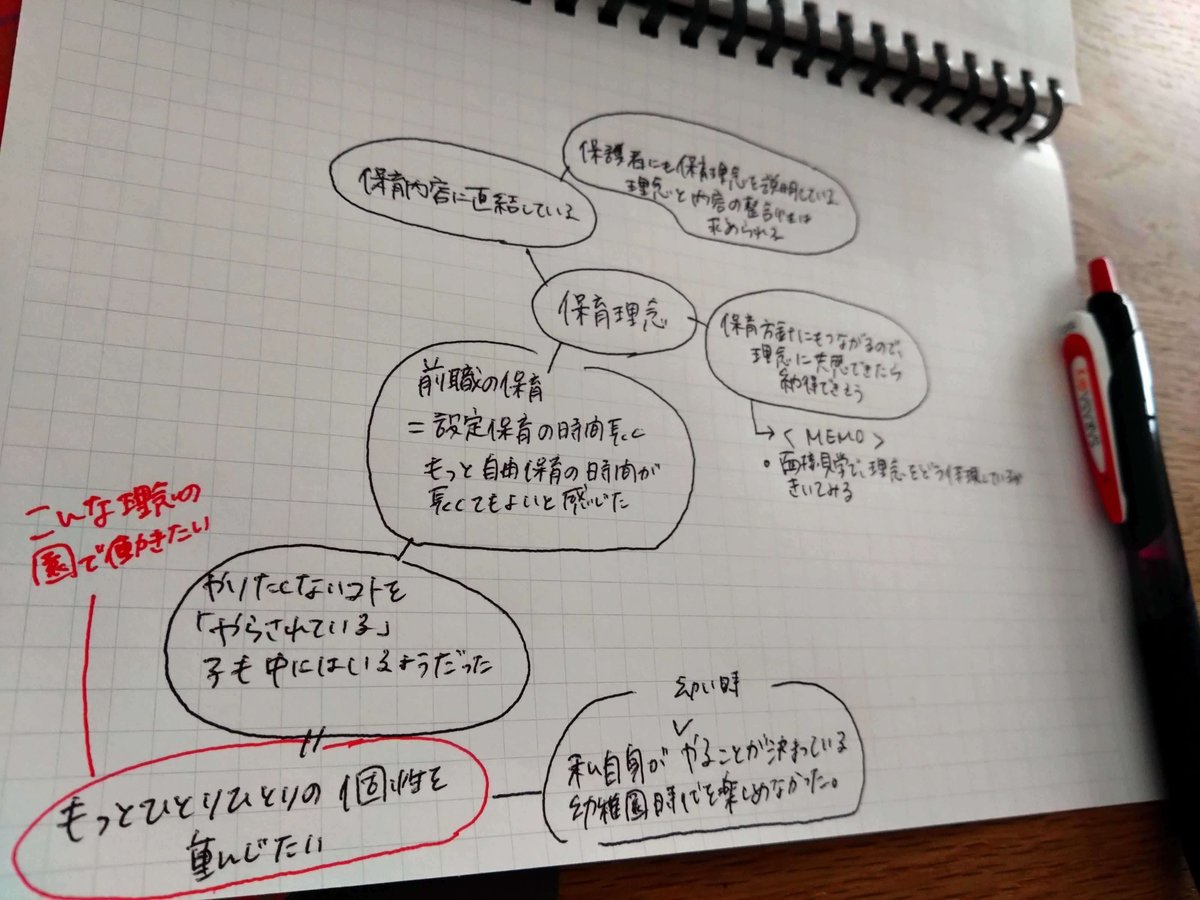 保育内容に直結している
保護者にも保育理念を説明している
理念と内容の整合性は
求められる
保育理念
保育方針にもつながるので、
理念に共感できたら
納得できそう
< MEMO >
・面接見学で、理念をどう体現しているか
きいてみる
前職の保育
=設定保育の時間長く
もっと自由保育の時間が
長くてもよいと感じた
こんな理念の
園で働きたい
やりたくないコトを
「やらされている」
子も中にはいるようだった
もっとひとりひとりの個性を
重んじたい
幼い時
私自身がやることが決まっている
幼稚園時代を楽しめなかった。